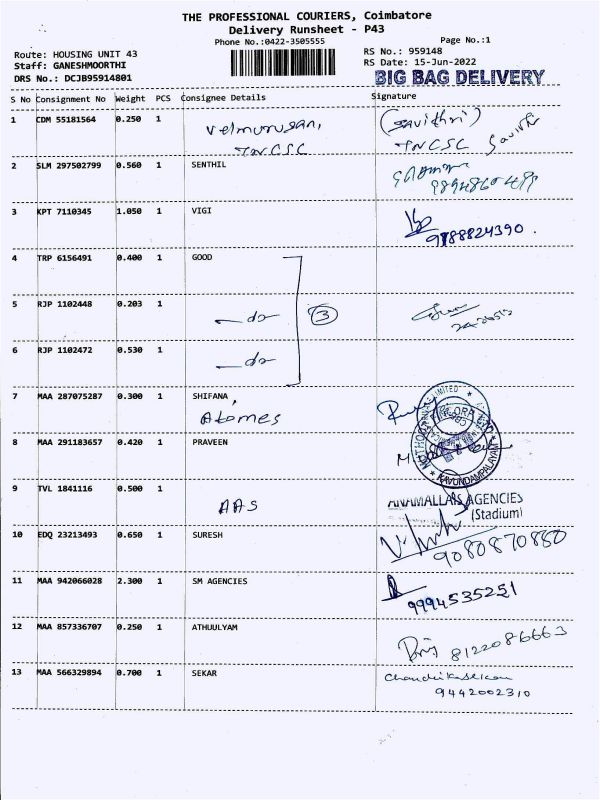 THE PROFESSIONAL COURIERS, Coimbatore
Delivery Runsheet - P43
Phone No.:0422-3505555
Page No.:1
Route: HOUSING UNIT 43
RS No.: 959148
Staff: GANESHMOORTHI
RS Date: 15-Jun-2022
DRS No.: DCJB95914801
BIG BAG DELIVERY
S No Consignment No Weight PCS Consignee Details Signature
1 CDM 55181564 0.250 1 Velmurusan, (Savithri)
TNCSC TNCSC Savithri
2 SLM 297502799 0.560 1 SENTHIL
3 KPT 7110345 1.050 1 VIGI
9788824390.
4 TRP 6156491 0.400 1 GOOD
5 RJP 1102448 0.203 1 —do— 3
6 RJP 1102472 0.530 1 —do—
7 MAA 287075287 0.300 1 SHIFANA,
Atomes
8 MAA 291183657 0.420 1 PRAVEEN
KAVUNDAMPALAYAM
9 TVL 1841116 0.500 1 AAS ANAMALLAIS AGENCIES
(Stadium)
10 EDQ 23213493 0.650 1 SURESH
9080870880
11 MAA 942066028 2.300 1 SM AGENCIES
9994535251
12 MAA 857336707 0.250 1 ATHUULYAM
8122086663
13 MAA 566329894 0.700 1 SEKAR Chandrikasekaran
9442002310